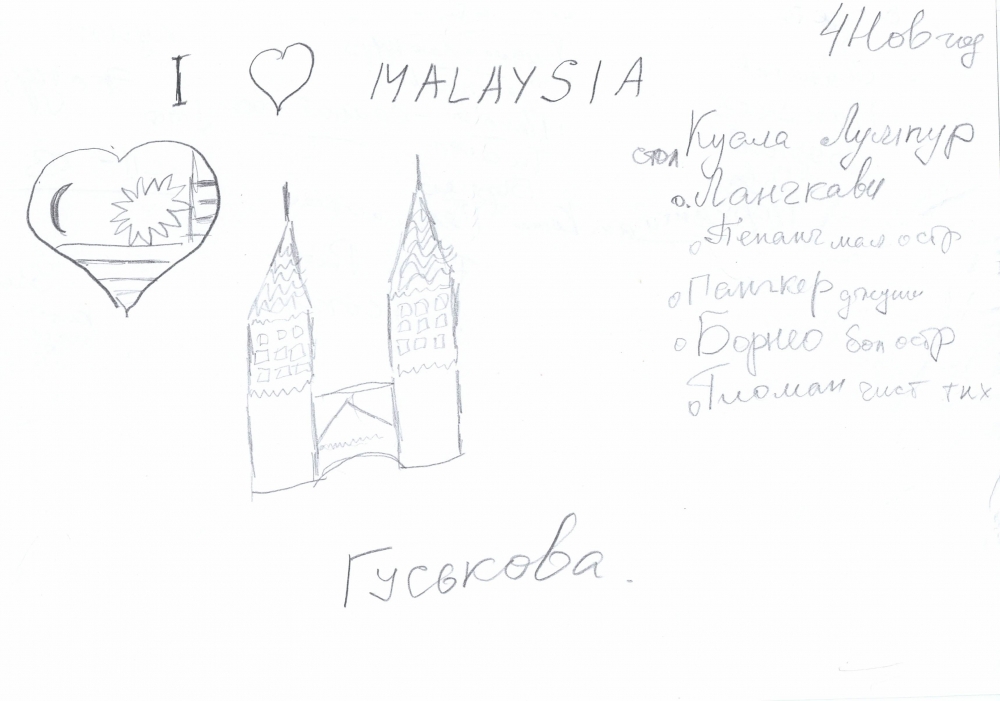 4 Нов год
I ♡ MALAYSIA
стол Куала Лумпур
о. Лангкави
о Пенанг мал остр
о Пангкор джунг
о Борнео бол остр
о Тиоман чист тих
Гуськова.